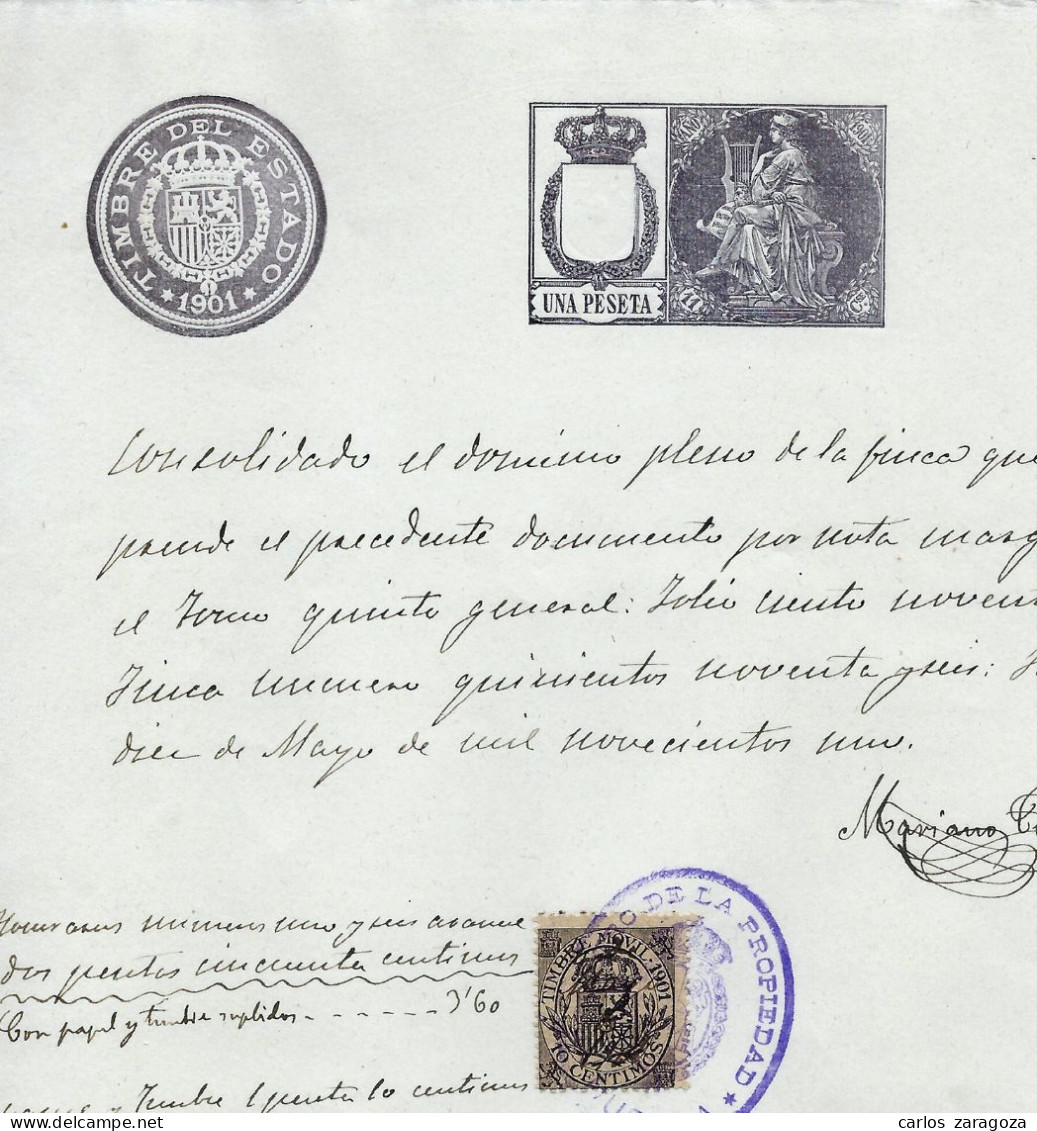 TIMBRE DEL ESTADO
* 1901 *
AÑO 1901
UNA PESETA
11
Consolidado el dominio pleno de la finca que
prende el precedente documento por nota marg
el Tomo quinto general: Folio ciento noven
Finca numero quinientos noventa y seis:
diez de Mayo de mil novecientos uno.
Mariano
Honorarios numeros uno y seis arancel
dos pesetas cincuenta centimos
Con papel y timbre suplidos - - - - - - 3'60
y Timbre 1 peseta 10 centimos
TIMBRE MOVIL·1901
10 CENTIMOS
O DE LA PROPIEDAD *
carlos zaragoza